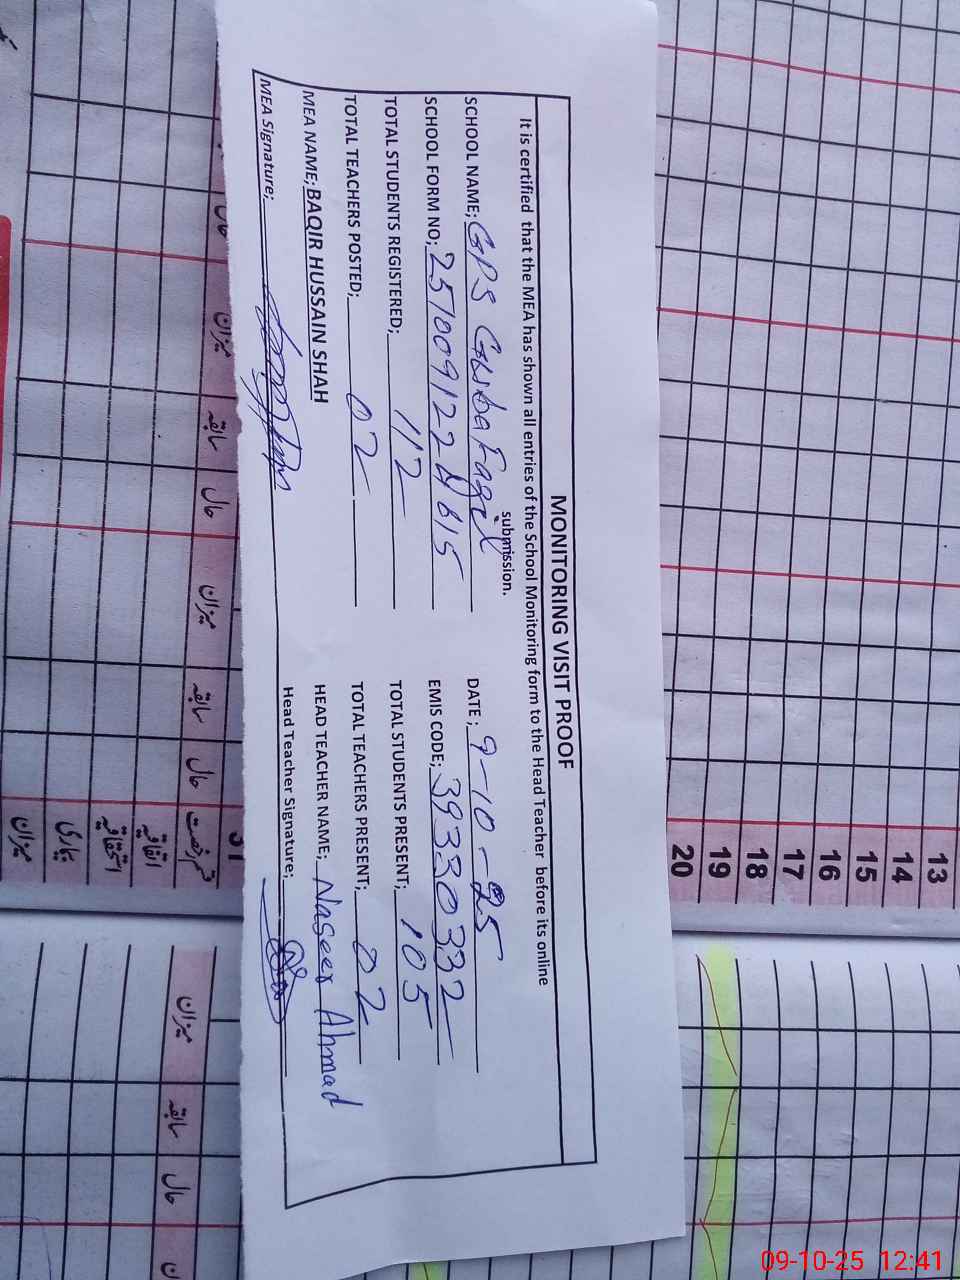 MONITORING VISIT PROOF
It is certified that the MEA has shown all entries of the School Monitoring form to the Head Teacher before its online
submission.
SCHOOL NAME; GPS Fazil DATE ; 9-10-25
SCHOOL FORM NO; EMIS CODE; 39330332
TOTAL STUDENTS REGISTERED; 112 TOTAL STUDENTS PRESENT; 105
TOTAL TEACHERS POSTED; 02 TOTAL TEACHERS PRESENT; 02
MEA NAME; BAQIR HUSSAIN SHAH HEAD TEACHER NAME; Naseer Ahmad
MEA Signature; Head Teacher Signature;
13
14
15
16
17
18
19
20
میزان
سابقہ
حال
میزان
سابقہ
حال
قسم رخصت
اتفاقیہ
استحقاقیہ
بیماری
میزان
میزان
سابقہ
حال
09-10-25 12:41